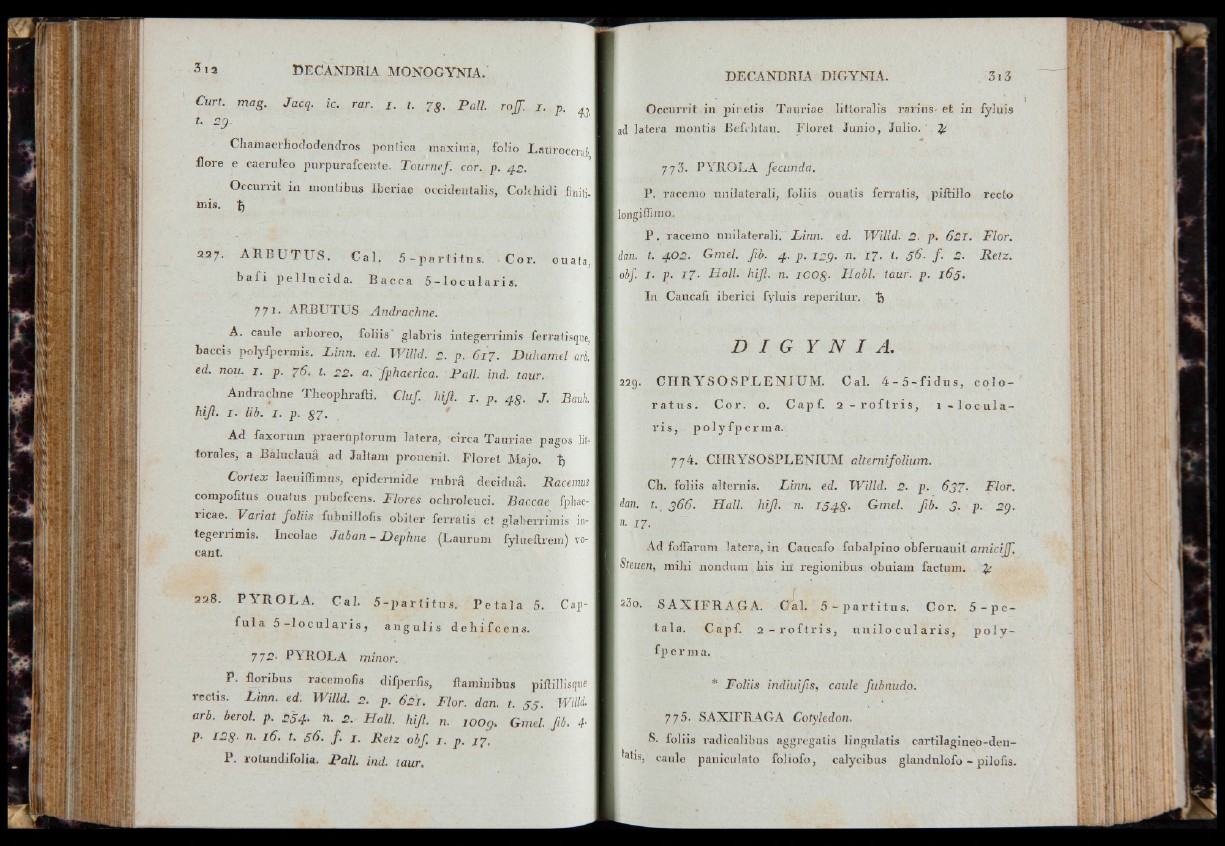 312 DECANDRIA MONOGYNIA.
Curt. mag. Jacq. ic. rar. 1. t. 78. Pall. roſſ. 1. p. 43.
t. 29.
Chamaerhododendros pontica maxima, folio Laurocerasi,
flore e caeruleo purpuraſcente. Tournef. cor. p. 42.
Occurrit in montibus Iberiae occidentalis, Colchidi finiti-
mis. ♄
227. ARBUTUS. Cal. 5-partitus. Cor. ouata,
baſi pellucida. Bacca 5-locularis.
771. ARBUTUS Andrachne.
A. caule arboreo, foliis glabris integerrimis ſerratisque,
baccis polyſpermis. Linn. ed. Willd. 2. p. 617. Duhamel arb.
ed. nou. 1. p. 76. t. 22. a. ſphaerica. Pall. ind. taur.
Andrachne Theophraſti. Cluſ. hiſt. 1. p. 48. J. Bauh.
hiſt. 1. lib. 1. p. 87.
Ad ſaxorum praeruptorum latera, circa Tauriae pagos lit-
torales, a Baluclauâ ad Jaltam prouenit. Floret Majo. ♄
Cortex laeuiſſimus, epidermide rubrâ deciduâ. Racemus
compoſitus ouatus pubeſcens. Flores ochroleuci. Baccae ſphae-
ricae. Variat foliis ſubuilloſis obiter ſerratis et glaberrimis in-
tegerrimis. Incolae Jaban-Dephne (Laurum ſylueſtrem) vo-
cant.
228. PYROLA. Cal. 5-partitus. Petala 5. Cap-
ſula 5-locularis, angulis dehiſcens.
772. PYROLA minor.
P. floribus racemoſis diſperſis, ſtaminibus piſtillisque
rectis. Linn. ed. Willd. 2. p. 621. Flor. dan. t. 55. Willd.
arb. berol. p. 254. n. 2. Hall. hiſt. n. 1009. Gmel. ſib. 4.
p. 128. n. 16. t. 56. f. 1. Retz obſ. 1. p. 17.
P. rotundifolia. Pall. ind. taur.
DECANDRIA DIGYNIA. 313
Occurrit in pinetis Tauriae littoralis rarius et in ſyluis
ad latera montis Beſchtau. Floret Junio, Julio. ♃
773. PYROLA ſecunda.
P. racemo unilaterali, foliis ouatis ſerratis, piſtillo recto
longiſſimo.
P. racemo unilaterali. Linn. ed. Willd. 2. p. 621. Flor.
dan. t. 402. Gmel. ſib. 4. p. 129. n. 17. t. 56. f. 2. Retz.
obſ. 1. p. 17. Hall. hiſt. n. 1008. Habl. taur. p. 165.
In Caucaſi iberici ſyluis reperitur. ♄
DIGYNIA.
229. CHRYSOSPLENIUM. Cal. 4-5-fidus, colo-
ratus. Cor. 0. Capſ. 2-roſtris, 1-locula-
ris, polyſperma.
774. CHRYSOSPLENIUM alternifolium.
Ch. foliis alternis. Linn. ed. Willd. 2. p. 637. Flor.
dan. t. 366. Hall. hiſt. n. 1548. Gmel. ſib. 3. p. 29.
n. 17.
Ad foſſarum latera, in Caucaſo ſubalpino obſeruauit amiciſſ.
Steuen, mihi nondum his in regionibus obuiam factum. ♃
230. SAXIFRAGA. Cal. 5-partitus. Cor. 5-pe-
tala. Capſ. 2-roſtris, unilocularis, poly-
ſperma.
* Foliis indiuiſis, caule ſubnudo.
775. SAXIFRAGA Cotyledon.
S. foliis radicalibus aggregatis lingulatis cartilagineo-den-
tatis, caule paniculato folioſo, calycibus glanduloſo-piloſis.